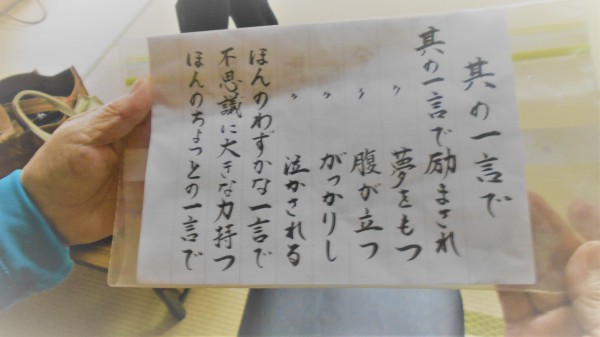 其の一言で
其の一言で励まされ
〃 夢をもつ
〃 腹が立つ
〃 がっかりし
〃 泣かされる
ほんのわずかな一言で
不思議に大きな力持つ
ほんのちょっとの一言で